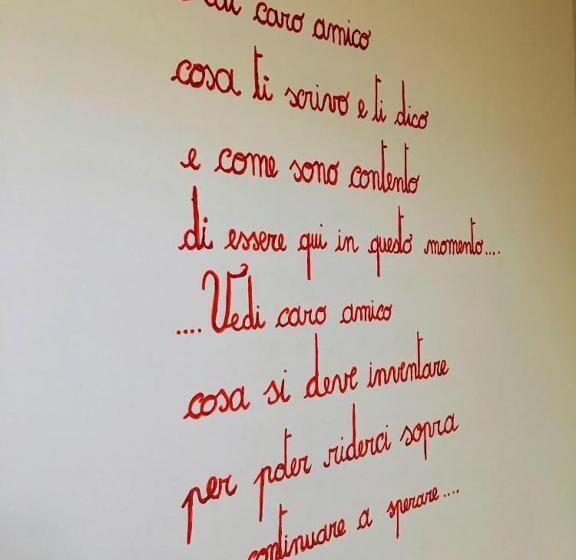 caro amico
cosa ti scrivo e ti dico
e come sono contento
di essere qui in questo momento....
....Vedi caro amico
cosa si deve inventare
per poter riderci sopra
continuare a sperare....